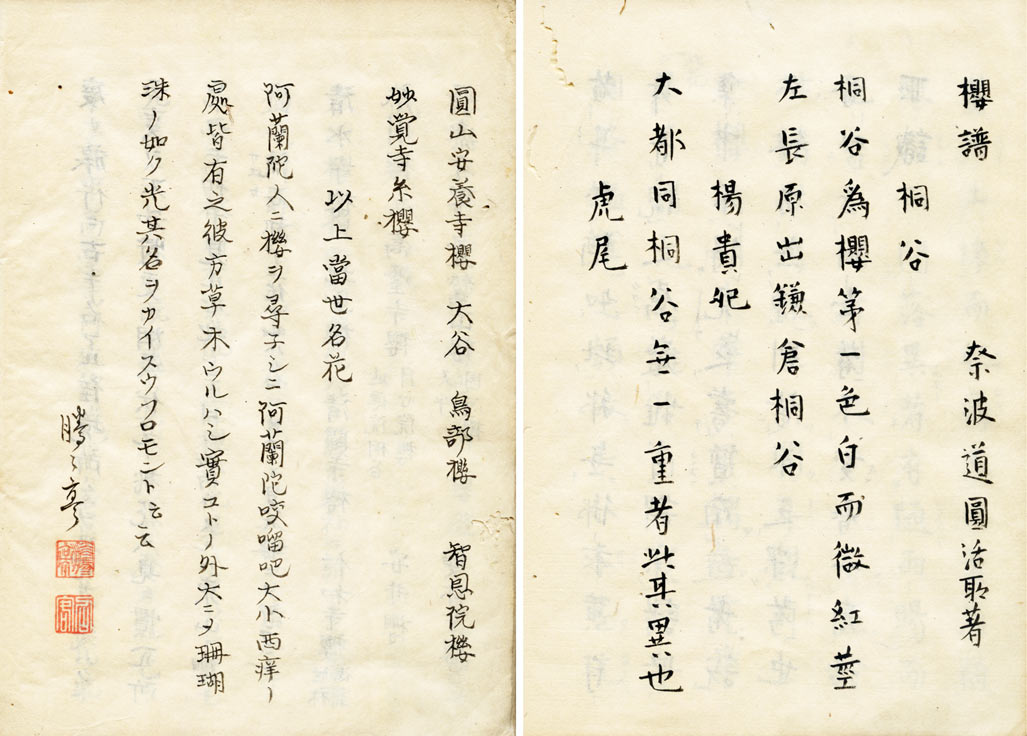 櫻譜　　　　奈波道圓活耶著
桐谷
桐谷爲櫻第一色白而微紅莖
左長原出鎌倉桐谷
楊貴妃
大都同桐谷無一重者此其異也
虎尾
圓山安養寺櫻　大谷　鳥部櫻　智恩院櫻
妙覺寺糸櫻
以上當世名花
阿蘭陀人ニ櫻ヲ尋子シニ阿蘭陀咬𠺕吧大小西痒ノ
處皆有之彼方草木ウルハシ實コトノ外大ニシテ珊瑚
珠ノ如ク光其名ヲカイスウフロモントシ云